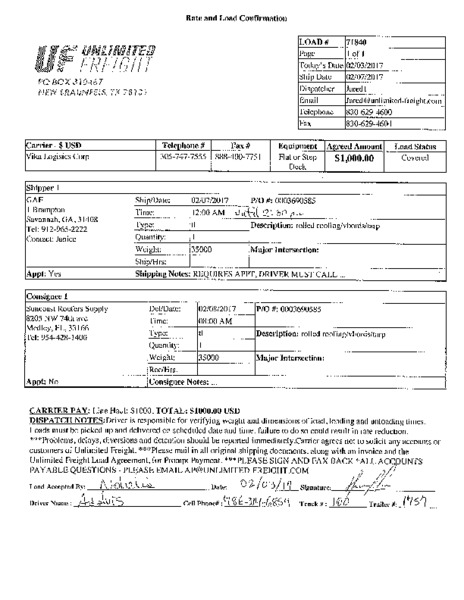 Rate and Load Confirmation
UF UNLIMITED FREIGHT
PO BOX 310467
NEW BRAUNFELS, TX 78131
LOAD # 71840
Page 1 of 1
Today's Date 02/03/2017
Ship Date 02/07/2017
Dispatcher Jared1
Email Jared@unlimited-freight.com
Telephone 830-629-4600
Fax 830-629-4601
Carrier - $ USD Telephone # Fax # Equipment Agreed Amount Load Status
Vika Logisics Corp 305-747-7555 888-400-7751 Flat or Step Deck $1,000.00 Covered
Shipper 1
GAF Ship/Date: 02/07/2017 P/O #: 0003690585
1 Brampton Time: 12:00 AM until 2:30 pm
Savannah, GA, 31408 Type: tl Description: rolled roofing/vbords/tap
Tel: 912-965-2222 Quantity: 1
Contact: Janice Weight: 35000 Major Intersection:
Ship/Hrs:
Appt: Yes Shipping Notes: REQUIRES APPT, DRIVER MUST CALL ...
Consignee 1
Suncoast Roofers Supply Del/Date: 02/08/2017 P/O #: 0003690585
8205 NW 74th ave Time: 08:00 AM
Medley, FL, 33166 Type: tl Description: rolled roofing/vbords/tap
Tel: 954-428-1406 Quantity: 1
Weight: 35000 Major Intersection:
Rec/Hrs:
Appt: No Consignee Notes: ...
CARRIER PAY: Line Haul: $1000, TOTAL: $1000.00 USD
DISPATCH NOTES: Driver is responsible for verifying weight and dimensions of load, loading and unloading times.
Loads must be picked up and delivered on scheduled date and time, failure to do so could result in rate reduction.
***Problems, delays, diversions and detention should be reported immediately. Carrier agrees not to solicit any accounts or
customers of Unlimited Freight. ***Please mail in all original shipping documents, along with an invoice and the
Unlimited Freight Load Agreement, for Prompt Payment. ***PLEASE SIGN AND FAX BACK *ALL ACCOUNTS
PAYABLE QUESTIONS - PLEASE EMAIL AP@UNLIMITED FREIGHT.COM
Load Accepted By: Date: 02/03/17 Signature:
Driver Name: Cell Phone#: Truck #: 100 Trailer #: 1757